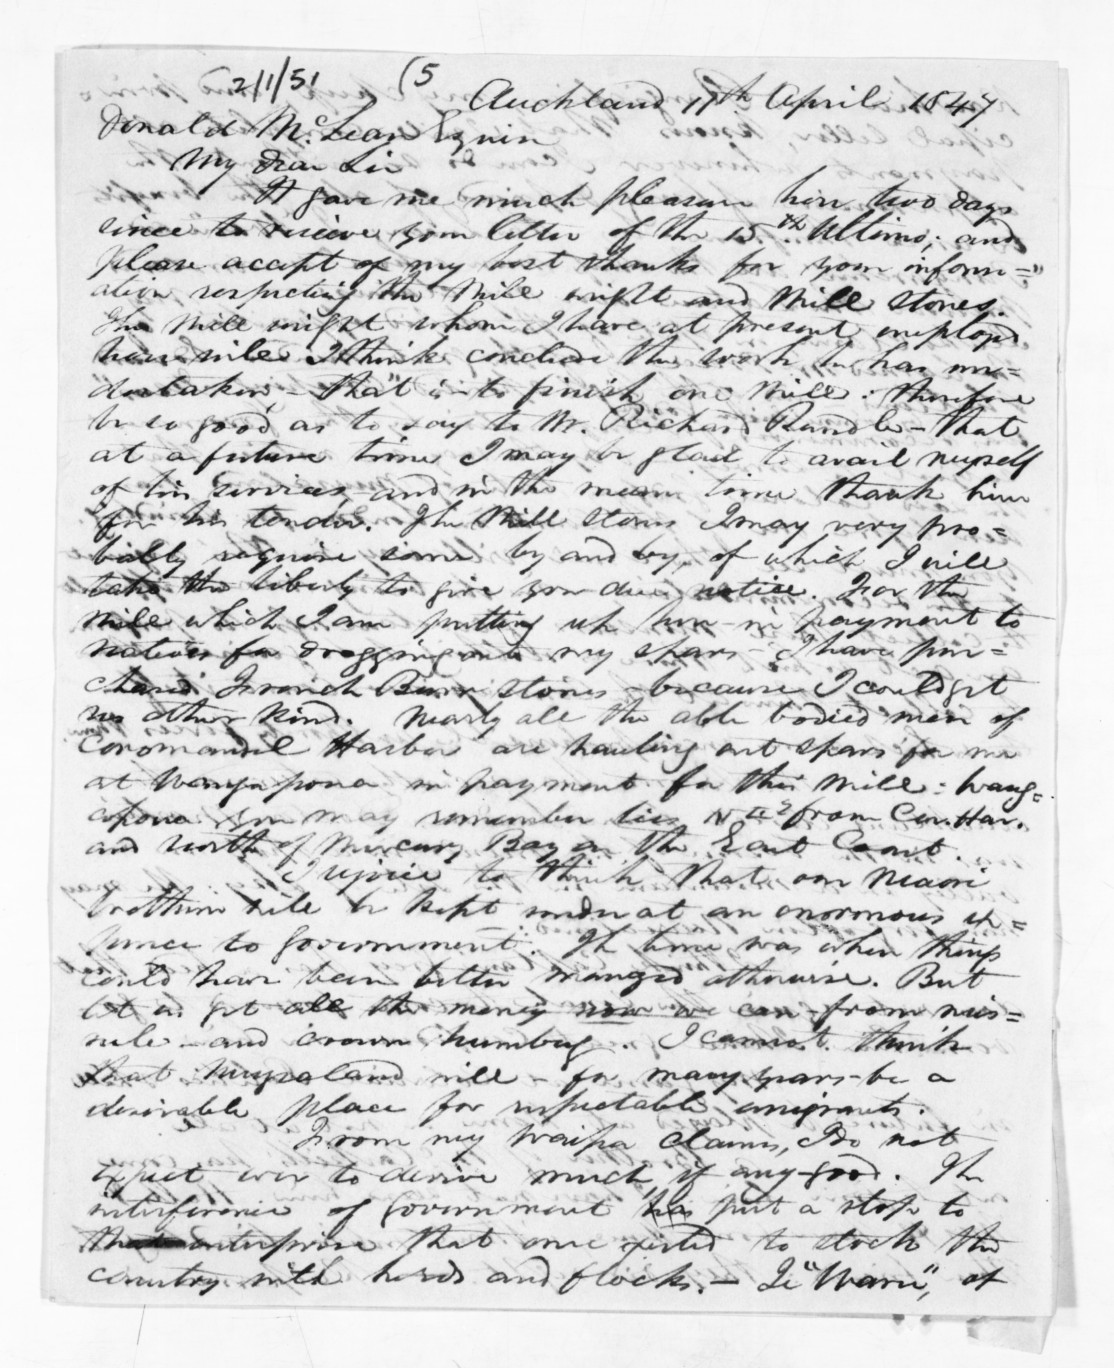 2/1/51 (5
Auckland 17th April 1847
Donald McLean Esquire
My dear Sir
It gave me much pleasure here two days
since to receive your letter of the 15th Ultimo; and
please accept of my best thanks for your inform=
ation respecting the Mill wright and Mill stones.
The Mill wright whom I have at present employed
here will I think conclude the work he has un=
dertaken - that is to finish one Mill: therefore
be so good as to say to Mr. Richard Rundle - that
at a future time I may be glad to avail myself
of his services - and in the mean time thank him
for his tender. The Mill stones I may very pro=
bably require some by and by, of which I will
take the liberty to give you due notice. For the
Mill which I am putting up here in payment to
Natives for dragging out my spars - I have pur=
chased French Burr stones - because I could get
no other kind. Nearly all the able bodied men of
Coromandel Harbor are hauling out spars for me
at Wangapoua in payment for this Mill: Wang=
apoua you may remember lies N Ed from Cor. Har.
and north of Mercury Bay on the East Coast.
I rejoice to think that our Maori
brethren will be kept under at an enormous ex=
pence to government. The time was when things
could have been better manged otherwise. But
let us get all the money now we can from mis=
rule - and crown humbug. I cannot think
that Newzealand will - for many years - be a
desirable place for respectable emigrants.
From my Waipa claims, I do not
expect ever to derive much, if any good. The
interference of government has put a stop to
that enterprise that once existed to stock the
country with herds and flocks. - Te "Waru", of